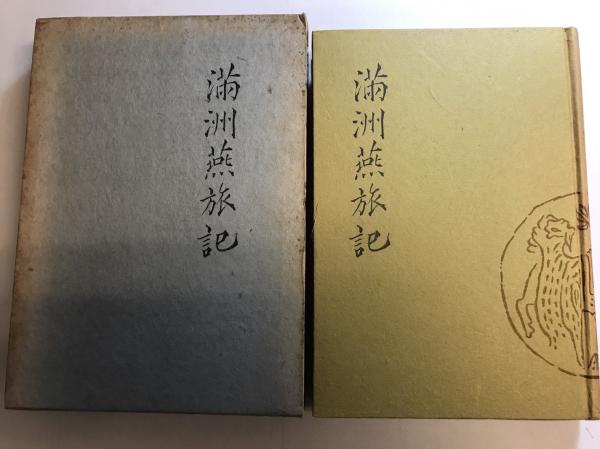 滿洲燕旅記
滿洲燕旅記